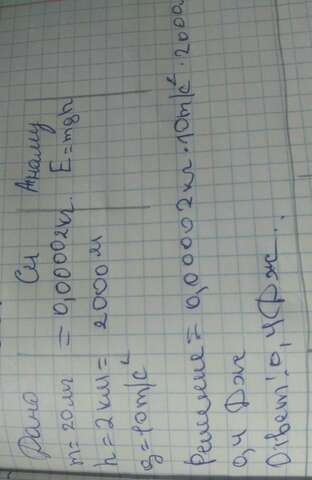 Дано Си Анализ
m = 20мг = 0,00002кг. E = mgh
h = 2км = 2000м
g = 10m/c²
Решение = 0,00002кг · 10m/c² · 2000
0,4 Дж
Ответ: 0,4 Дж.